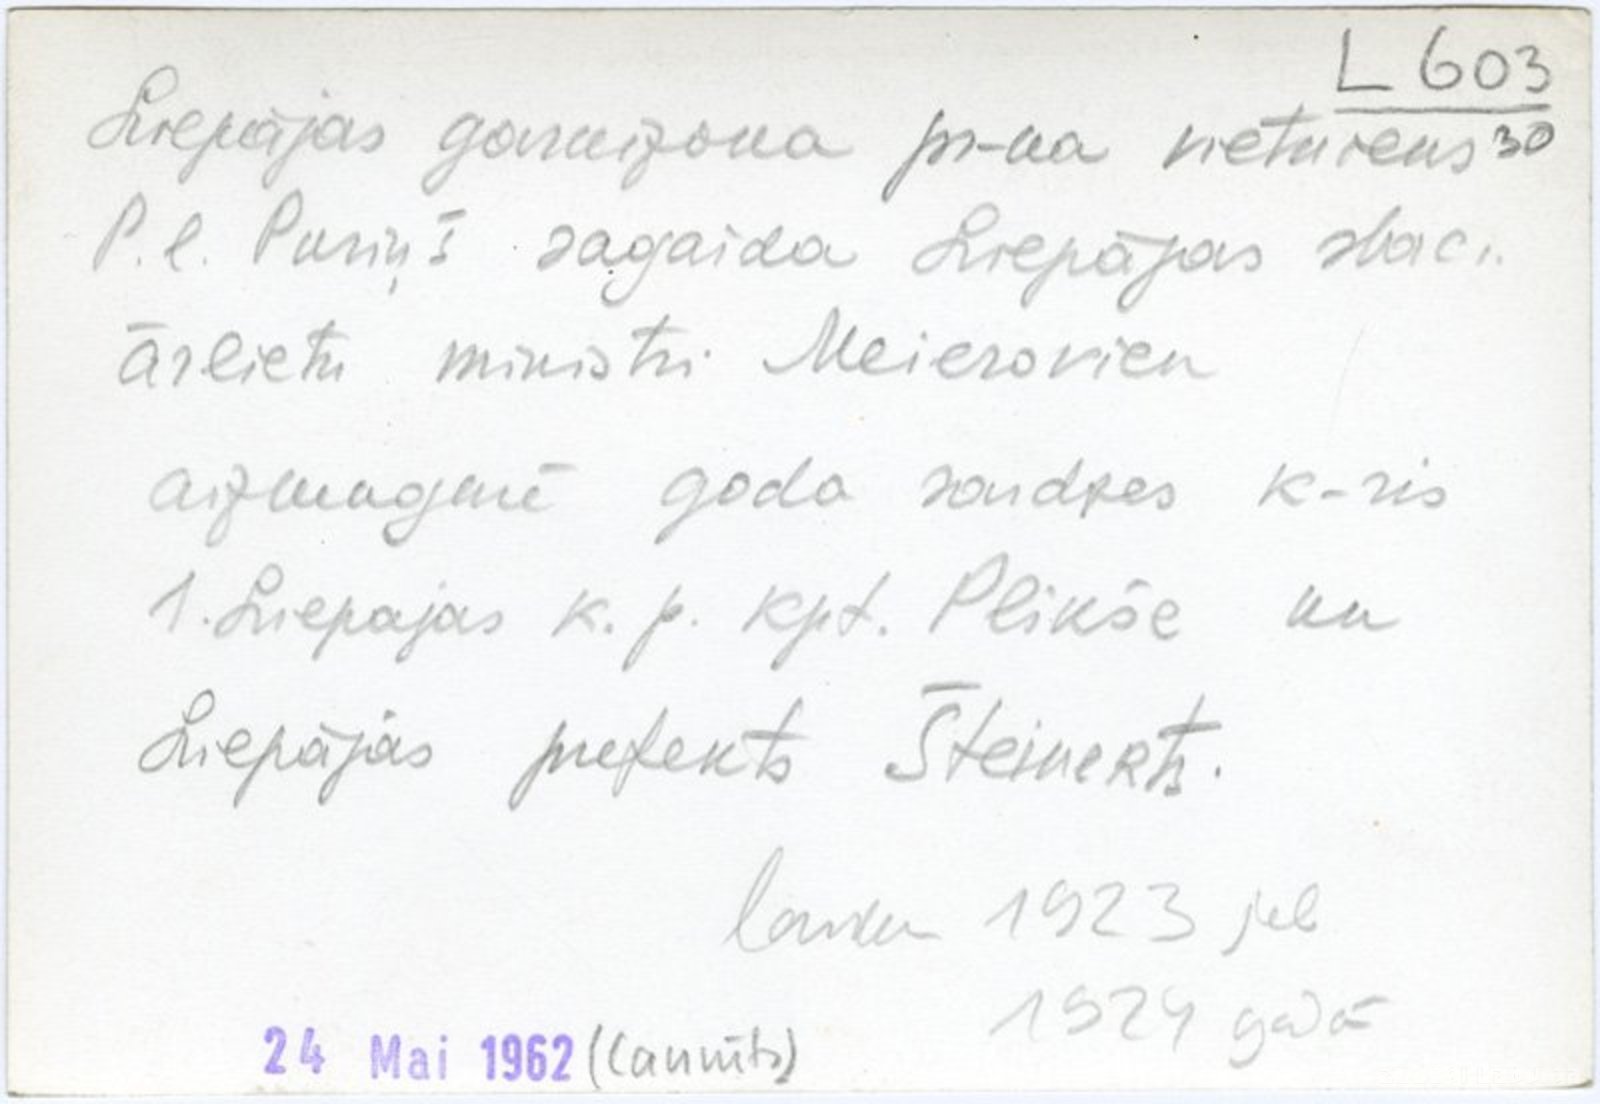 L 603
30
Liepājas garnizona pr-ka vietnieks
P. l. Puriņš sagaida Liepājas stac.
ārlietu ministri Meierovicu
aizmugurē goda sardzes k-ris
1. Liepajas k. p. kpt. Plikše un
Liepājas prefekts Šteinerts.
1923 jeb
1924 gadā
24 Mai 1962